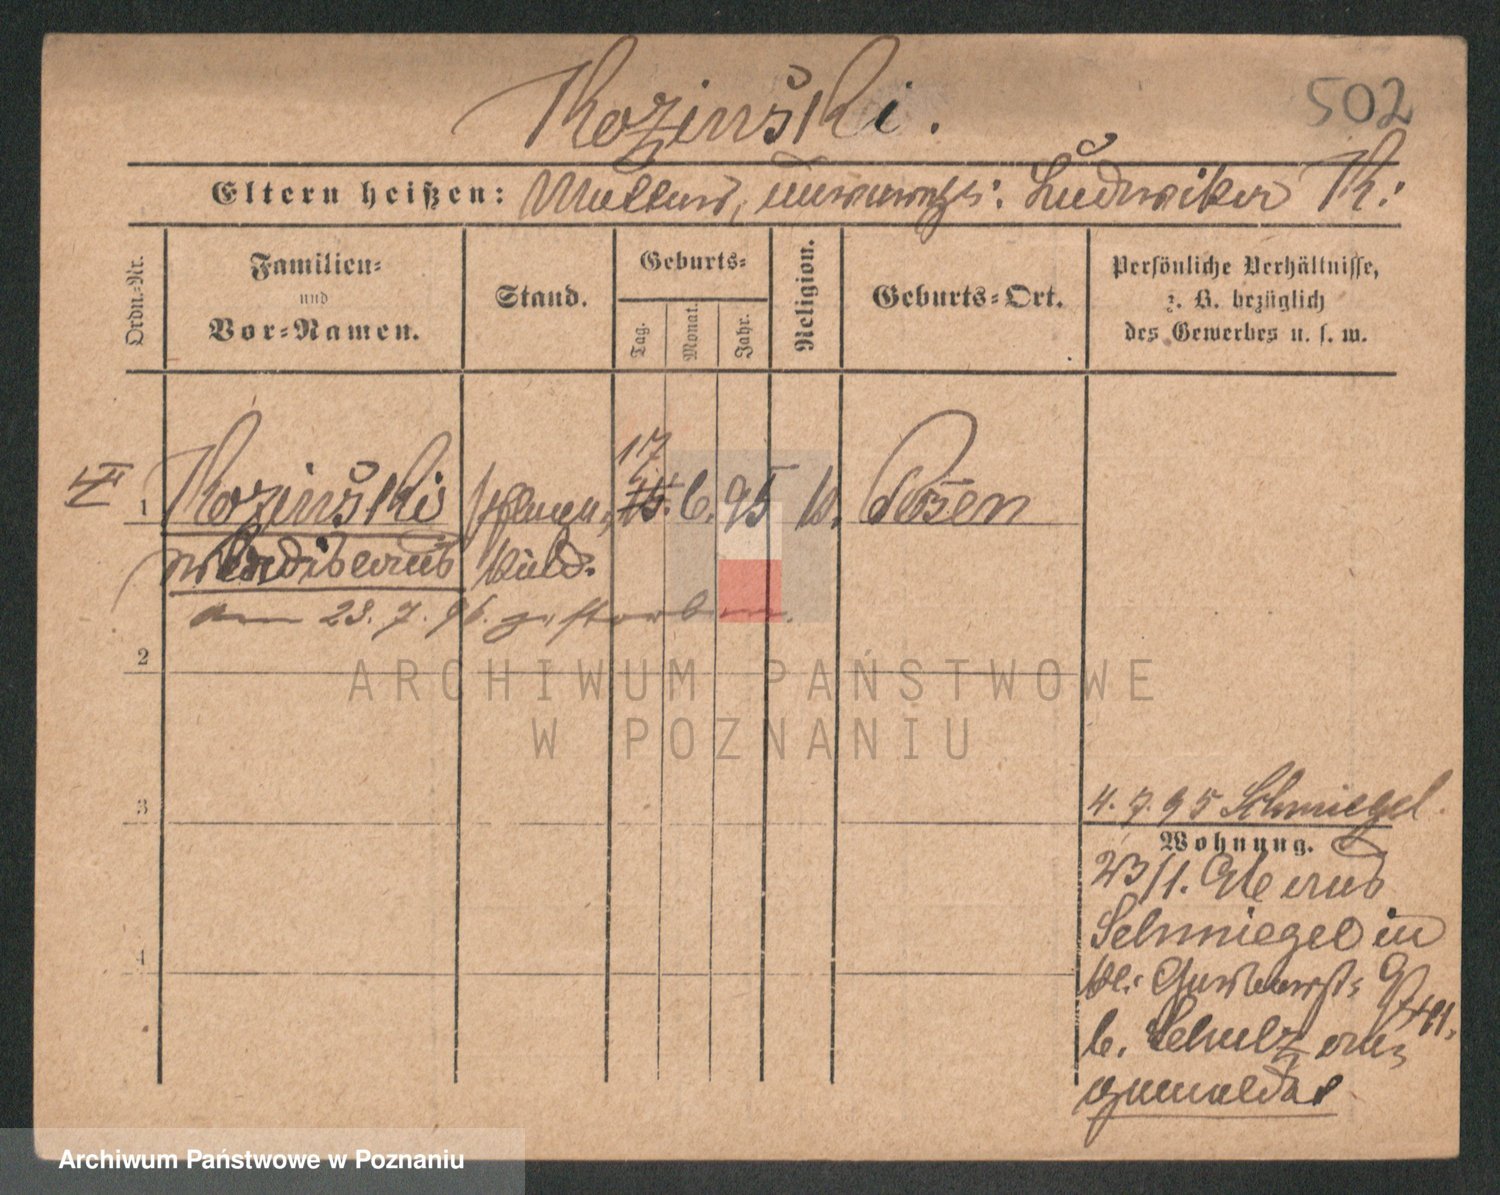 Kozinski.
502
Eltern heißen: Mutter, unverehel: Ludwika K:
Ordn.-Nr.
Familien-
und
Vor-Namen.
Stand.
Geburts-
Tag.
Monat.
Jahr.
Religion.
Geburts-Ort.
Persönliche Verhältnisse,
z. B. bezüglich
des Gewerbes u. s. w.
17
1 Kozinski Pflege- 6. 95 k. Posen
Ladislaus Kind.
am 23. 7. 96. gestorben.
2
3
4
ARCHIWUM PAŃSTWOWE
W POZNANIU
4. 7. 95 Schmiegel.
Wohnung.
23/1. 96 aus
Schmiegel in
kl: 9
b. Schulz
gemeldet
Archiwum Państwowe w Poznaniu